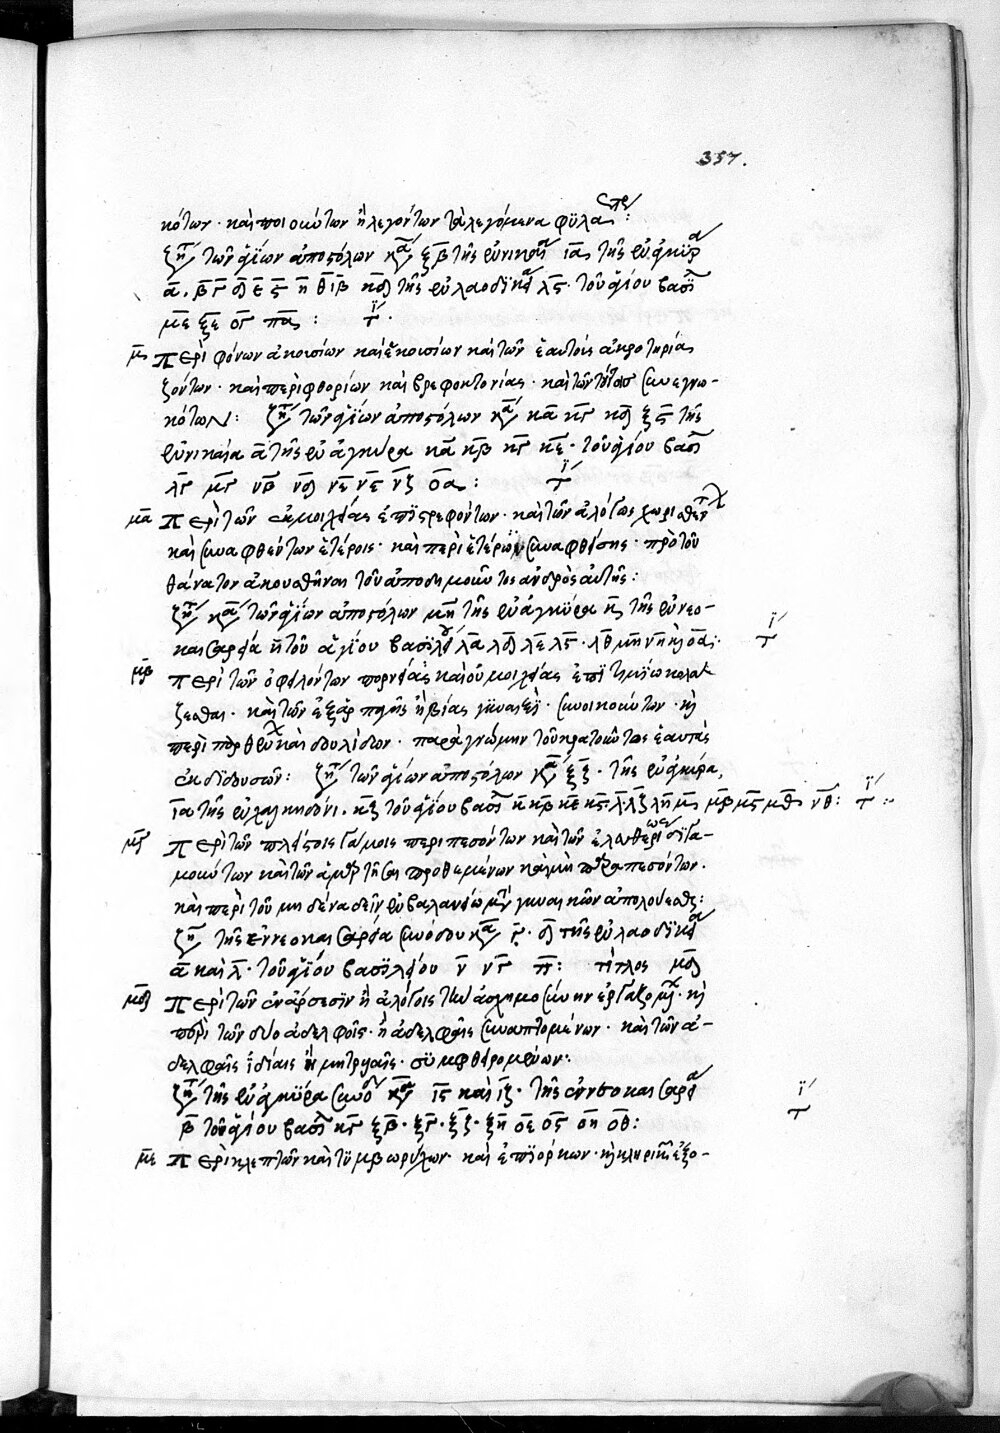 357.
κότων · καὶ ποιούντων ἢ λεγόντων τὰ λεγόμενα φϋλα
ζήτ τῶν ἁγίων ἀποστόλων κα ξβ τῆς ἐν νικαία ια τῆς ἐν ἀγκύρ
α. β γ δ ε ς η θ ιβ τῆς ἐν λαοδικ λς· τοῦ ἁγίου βασι
με ξε ογ πα : τϊ ·
μ περὶ φόνων ἀκουσίων καὶ ἑκουσίων καὶ τῶν ἑαυτοὺς ἀκροτηρια
ζόντων · καὶ περὶ φθορίων καὶ βρεφοκτονίας · καὶ τῶν συνεγνω-
κότων : ζητ τῶν ἁγίων ἀποστόλων κα κα κγ κδ ξς τῆς
ἐν νικαία α τῆς ἐν ἀγκύρα κα κβ κγ κε · τοῦ ἁγίου βασι
λγ μγ νβ νδ νε νς νζ οα : τϊ
μα περὶ τῶν ἐκ μοιχείας ἐπιστρεφόντων · καὶ τῶν ἀλόγως χωρισθέντ
καὶ συναφθέντων ἑτέροις · καὶ περὶ ἑτέρων συναφθείσης · πρὸ τοῦ
θάνατον ἀκουσθῆναι τοῦ ἀποδημοῦντος ἀνδρὸς αὐτῆς :
ζητ κα τῶν ἁγίων ἀποστόλων μη τῆς ἐν ἀγκύρα κ τῆς ἐν νεο-
καισαρεία η τοῦ ἁγίου βασιλείου λα λδ λε λς · λθ μη νη καὶ οα : τϊ
μβ περὶ τῶν ὀφειλόντων πορνείας καὶ οὐ μοιχείας ἐπιτιμίω κολα
ζεσθαι · καὶ τῶν ἐξ ἁρπαγῆς ἢ βίας γυναιξὶ · συνοικούντων · καὶ
περὶ παρθένων καὶ δουλίδων · παρὰ γνώμην τοῦ κρατοῦντος ἑαυτὰς
ἐκδιδουσῶν : ζητ τῶν ἁγίων ἀποστόλων κα ξζ · τῆς ἐν ἀγκύρα,
ια τῆς ἐν χαλκηδόνι · κζ τοῦ ἁγίου βασι κ κβ κε κς λ λζ λη μ μβ μς μθ νθ : τϊ :
μγ περὶ τῶν πλείστοις γάμοις περιπεσόντων καὶ τῶν ἐλευθερίως διγα-
μούντων καὶ τῶν προθεμένων καὶ μὴ παραπεσόντων ·
καὶ περὶ τοῦ μηδένα δεῖν ἐν βαλανείω μετὰ γυναικῶν ἀπολούεσθαι :
ζητ τῆς ἐν νεοκαισαρεία συνόδου κα γ · ζ τῆς ἐν λαοδικ
α καὶ λ · τοῦ ἁγίου βασιλείου ν νγ π : τίτλος μδ
μδ περὶ τῶν ἐν ἄρσεσιν ἢ ἀλόγοις τὴν ἀσχημοσύνην ἐργαζομ · καὶ
περὶ τῶν δυο ἀδελφοῖς · ἢ ἀδελφαῖς συναπτομένων · καὶ τῶν ἀ-
δελφαῖς ἰδίαις ἢ μητρυαῖς · συμφθειρομένων :
ζητ τῆς ἐν ἀγκύρα συνο κα ις καὶ ιζ · τῆς ἐν νεοκαισαρ
β τοῦ ἁγίου βασι κγ ξβ · ξγ · ξζ · ξη οε ος οη οθ : τϊ
με περὶ κλεπτῶν καὶ τυμβωρύχων · καὶ ἐπιόρκων · καὶ κληρικ ἐξο-